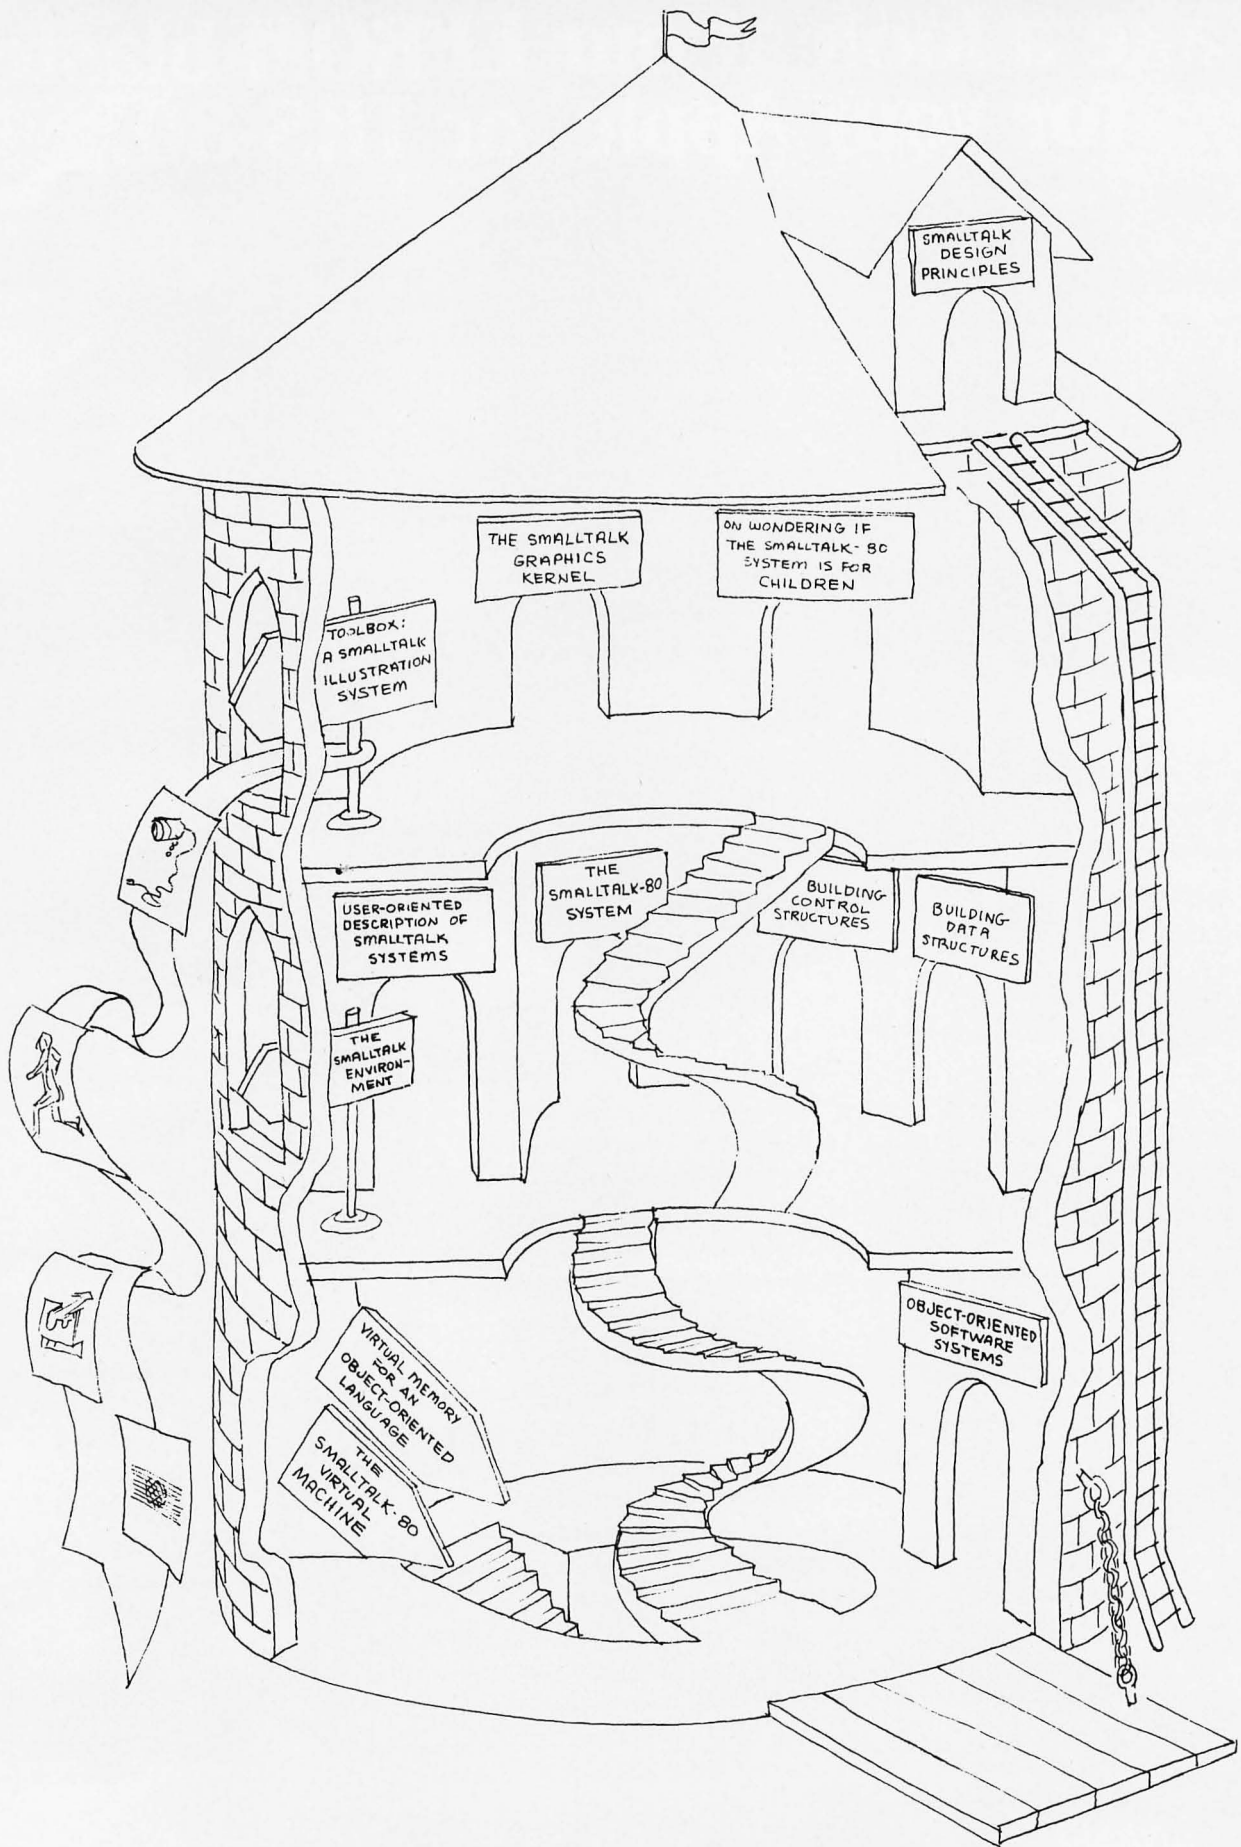 SMALLTALK
DESIGN
PRINCIPLES
THE SMALLTALK
GRAPHICS
KERNEL
ON WONDERING IF
THE SMALLTALK-80
SYSTEM IS FOR
CHILDREN
TOOLBOX:
A SMALLTALK
ILLUSTRATION
SYSTEM
USER-ORIENTED
DESCRIPTION OF
SMALLTALK
SYSTEMS
THE
SMALLTALK-80
SYSTEM
BUILDING
CONTROL
STRUCTURES
BUILDING
DATA
STRUCTURES
THE
SMALLTALK
ENVIRON-
MENT
VIRTUAL MEMORY
FOR AN
OBJECT-ORIENTED
LANGUAGE
THE
SMALLTALK-80
VIRTUAL
MACHINE
OBJECT-ORIENTED
SOFTWARE
SYSTEMS